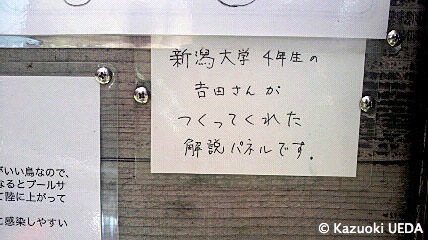 新潟大学 4年生の
吉田さんが
つくってくれた
解説パネルです。
がいい鳥なので、
なるとプールサ
て陸に上がって
に感染しやすい
© Kazuoki UEDA